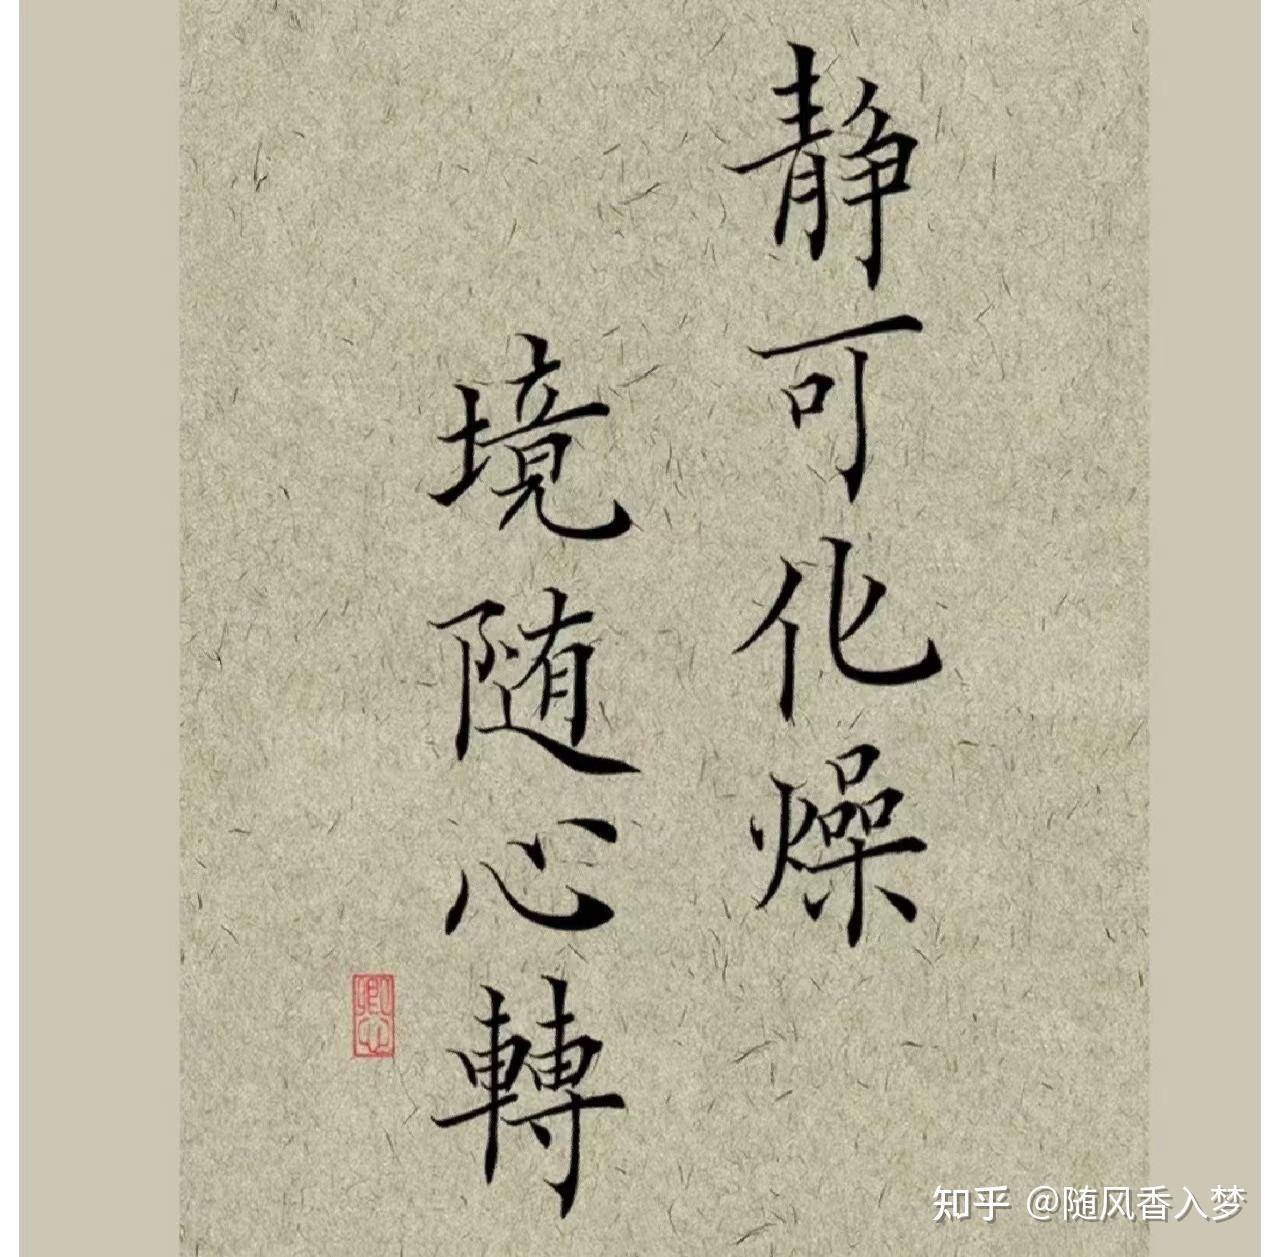 静可化燥
境随心轉
知乎 @随风香入梦